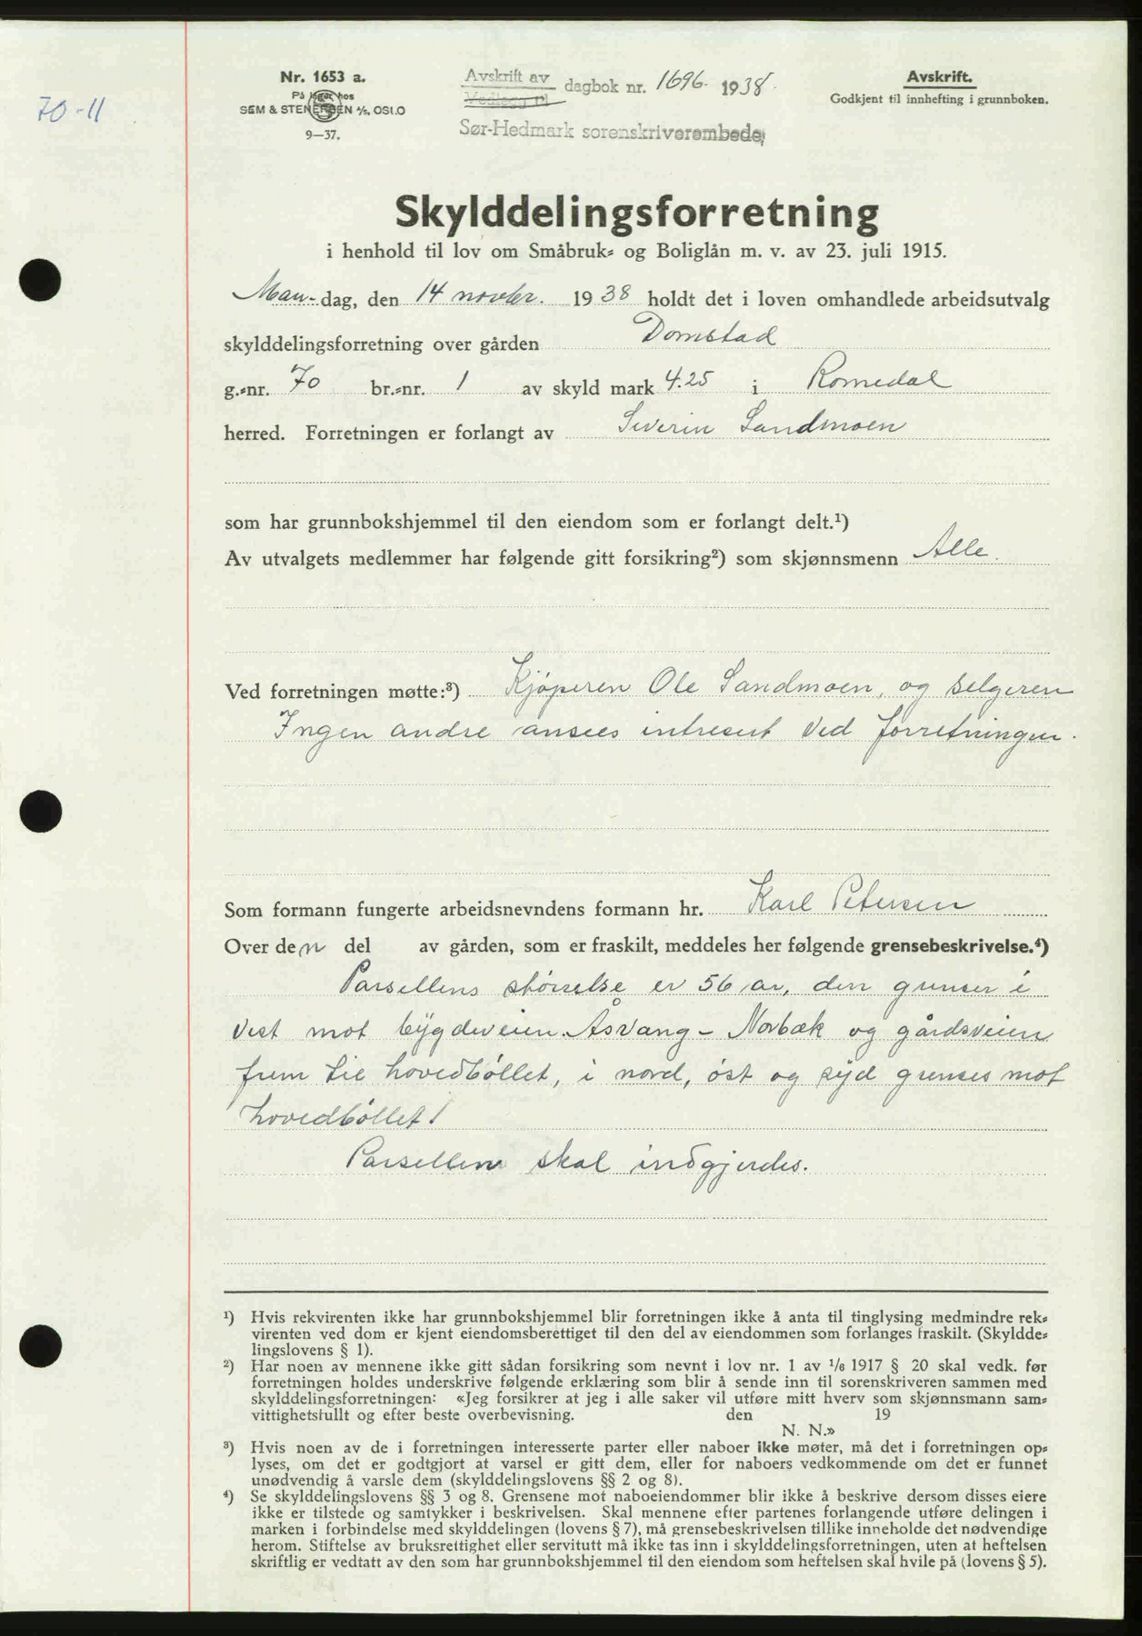 70-11
Nr. 1653 a.
På lager hos
SEM & STENERSEN A/S, OSLO
9—37.
Avskrift av dagbok nr. 1696. 1938.
Vedlegg til
Sør-Hedmark sorenskriverembede
Avskrift.
Godkjent til innhefting i grunnboken.
Skylddelingsforretning
i henhold til lov om Småbruk- og Boliglån m. v. av 23. juli 1915.
Man-dag, den 14 novbr. 1938 holdt det i loven omhandlede arbeidsutvalg
skylddelingsforretning over gården Domstad
g.-nr. 70 br.-nr. 1 av skyld mark 4.25 i Romedal
herred. Forretningen er forlangt av Severin Sandmoen
som har grunnbokshjemmel til den eiendom som er forlangt delt.¹)
Av utvalgets medlemmer har følgende gitt forsikring²) som skjønnsmenn Alle.
Ved forretningen møtte:³) Kjøperen Ole Sandmoen, og selgeren
Ingen andre ansees intresert ved forretningen.
Som formann fungerte arbeidsnevndens formann hr. Karl Petersen
Over den del av gården, som er fraskilt, meddeles her følgende grensebeskrivelse.⁴)
Parsellens størrelse er 56 ar, den grenser i
vest mot bygdeveien Åsvang - Norbæk og gårdsveien
frem til hovedbøllet, i nord, øst og syd grenses mot
hovedbøllet!
Parsellen skal indgjerdes.
¹) Hvis rekvirenten ikke har grunnbokshjemmel blir forretningen ikke å anta til tinglysing medmindre rek-
virenten ved dom er kjent eiendomsberettiget til den del av eiendommen som forlanges fraskilt. (Skyldde-
lingslovens § 1).
²) Har noen av mennene ikke gitt sådan forsikring som nevnt i lov nr. 1 av 1/6 1917 § 20 skal vedk. før
forretningen holdes underskrive følgende erklæring som blir å sende inn til sorenskriveren sammen med
skylddelingsforretningen: «Jeg forsikrer at jeg i alle saker vil utføre mitt hverv som skjønnsmann sam-
vittighetsfullt og efter beste overbevisning. den 19
N. N.»
³) Hvis noen av de i forretningen interesserte parter eller naboer ikke møter, må det i forretningen op-
lyses, om det er godtgjort at varsel er gitt dem, eller for naboers vedkommende om det er funnet
unødvendig å varsle dem (skylddelingslovens §§ 2 og 8).
⁴) Se skylddelingslovens §§ 3 og 8. Grensene mot naboeiendommer blir ikke å beskrive dersom disses eiere
ikke er tilstede og samtykker i beskrivelsen. Skal mennene efter partenes forlangende utføre delingen i
marken i forbindelse med skylddelingen (lovens § 7), må grensebeskrivelsen tillike inneholde det nødvendige
herom. Stiftelse av bruksrettighet eller servitutt må ikke tas inn i skylddelingsforretningen, uten at heftelsen
skriftlig er vedtatt av den som har grunnbokshjemmel til den eiendom som heftelsen skal hvile på (lovens § 5).